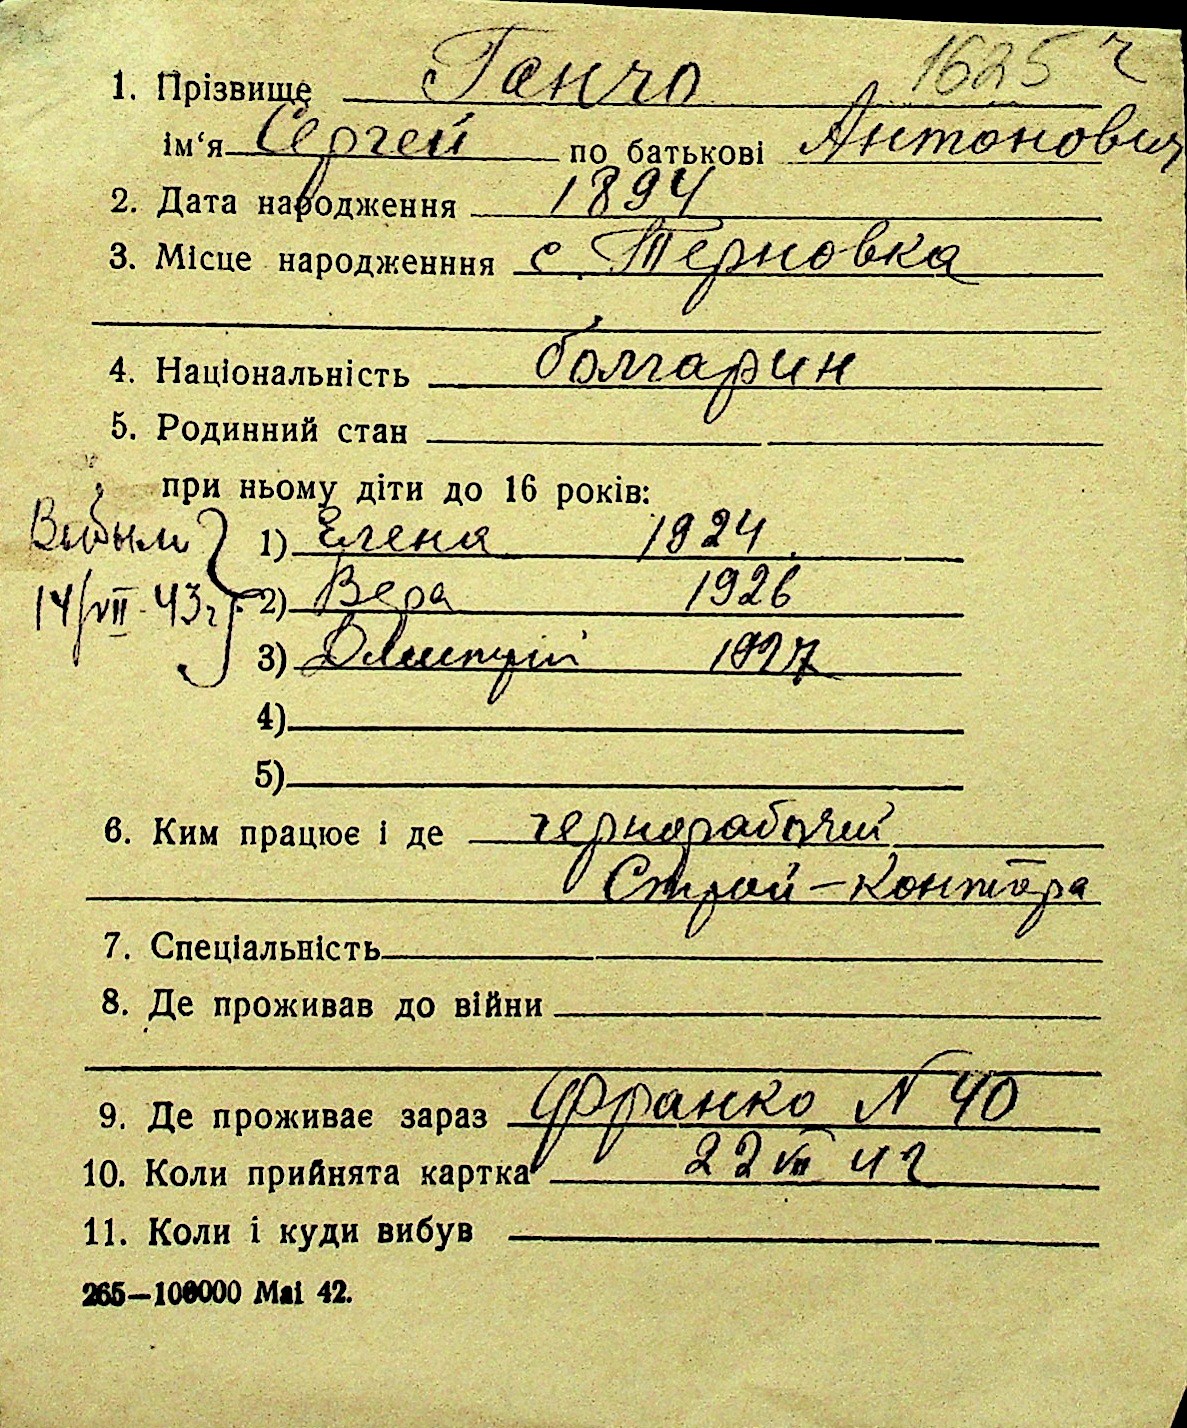 1625 ч
1. Прізвище Ганчо
ім‘я Сергей по батькові Антонович
2. Дата народження 1894
3. Місце народженння с. Терновка
4. Національність болгарин
5. Родинний стан
при ньому діти до 16 років:
Выбыли 1) Елена 1924
14/VII-43г. 2) Вера 1926
3) Дмитрий 1927
4)
5)
6. Ким працює і де чернорабочий
Строй-контора
7. Спеціальність
8. Де проживав до війни
9. Де проживає зараз Франко N 40
10. Коли прийнята картка 22 VII 42
11. Коли і куди вибув
265—100000 Маі 42.